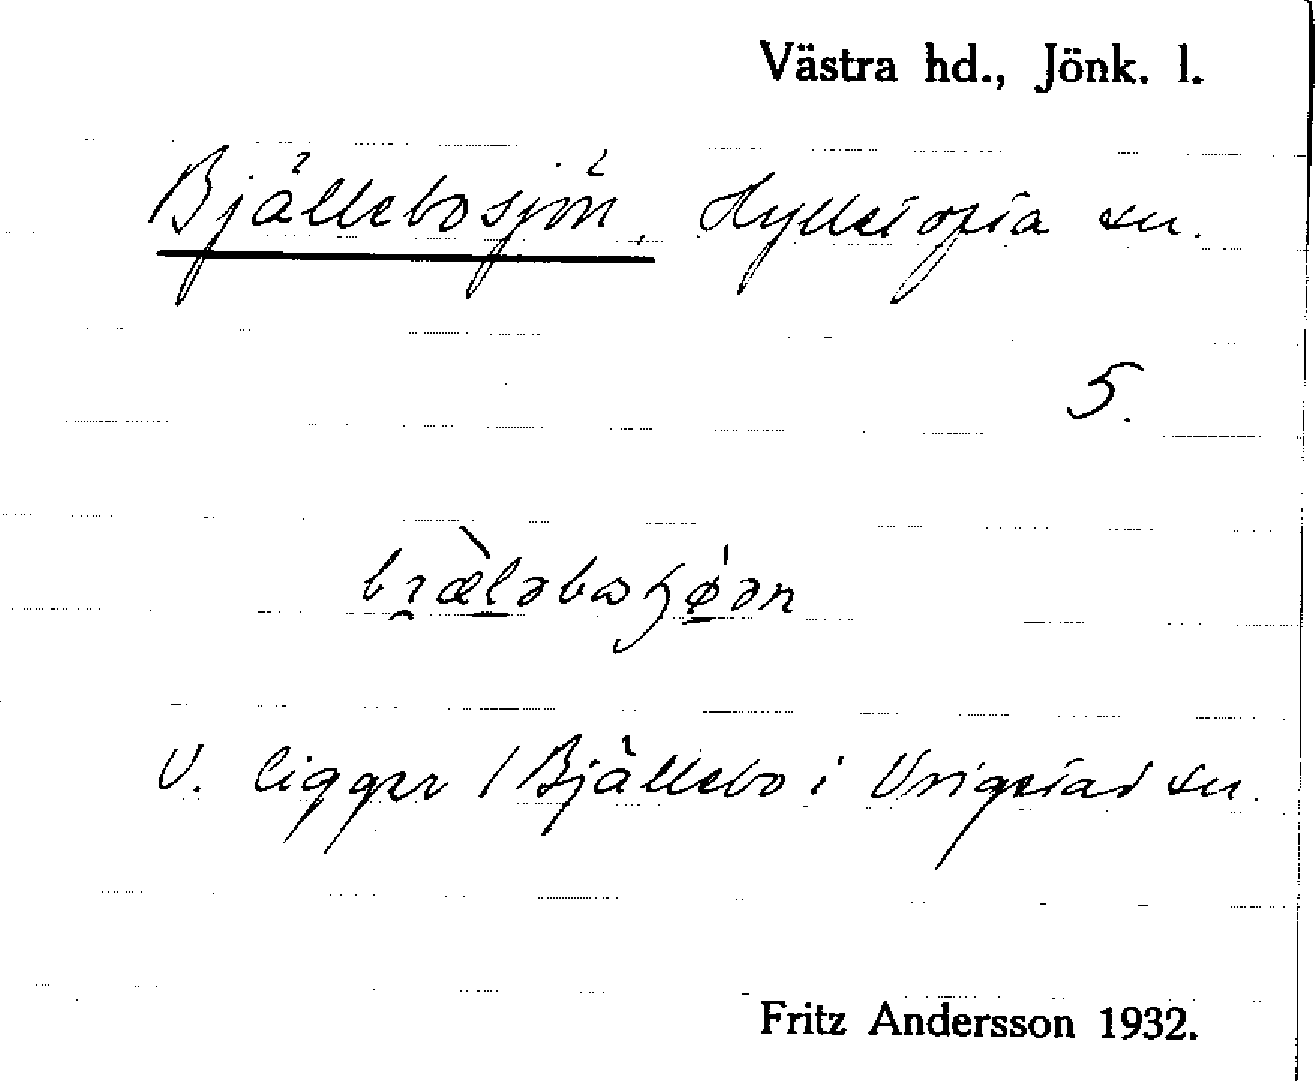 Västra hd., Jönk. l.
Bjällebosjön. Hylletofta sn.
5.
U. ligger i Bjällebo i Vrigstad sn.
Fritz Andersson 1932.